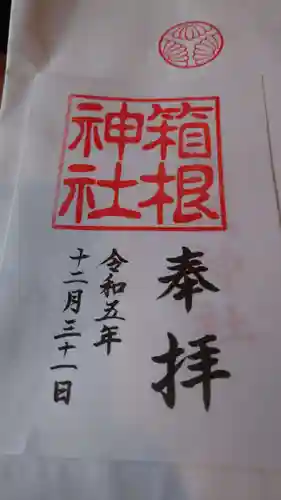 箱根
神社
奉拝
令和五年
十二月三十一日